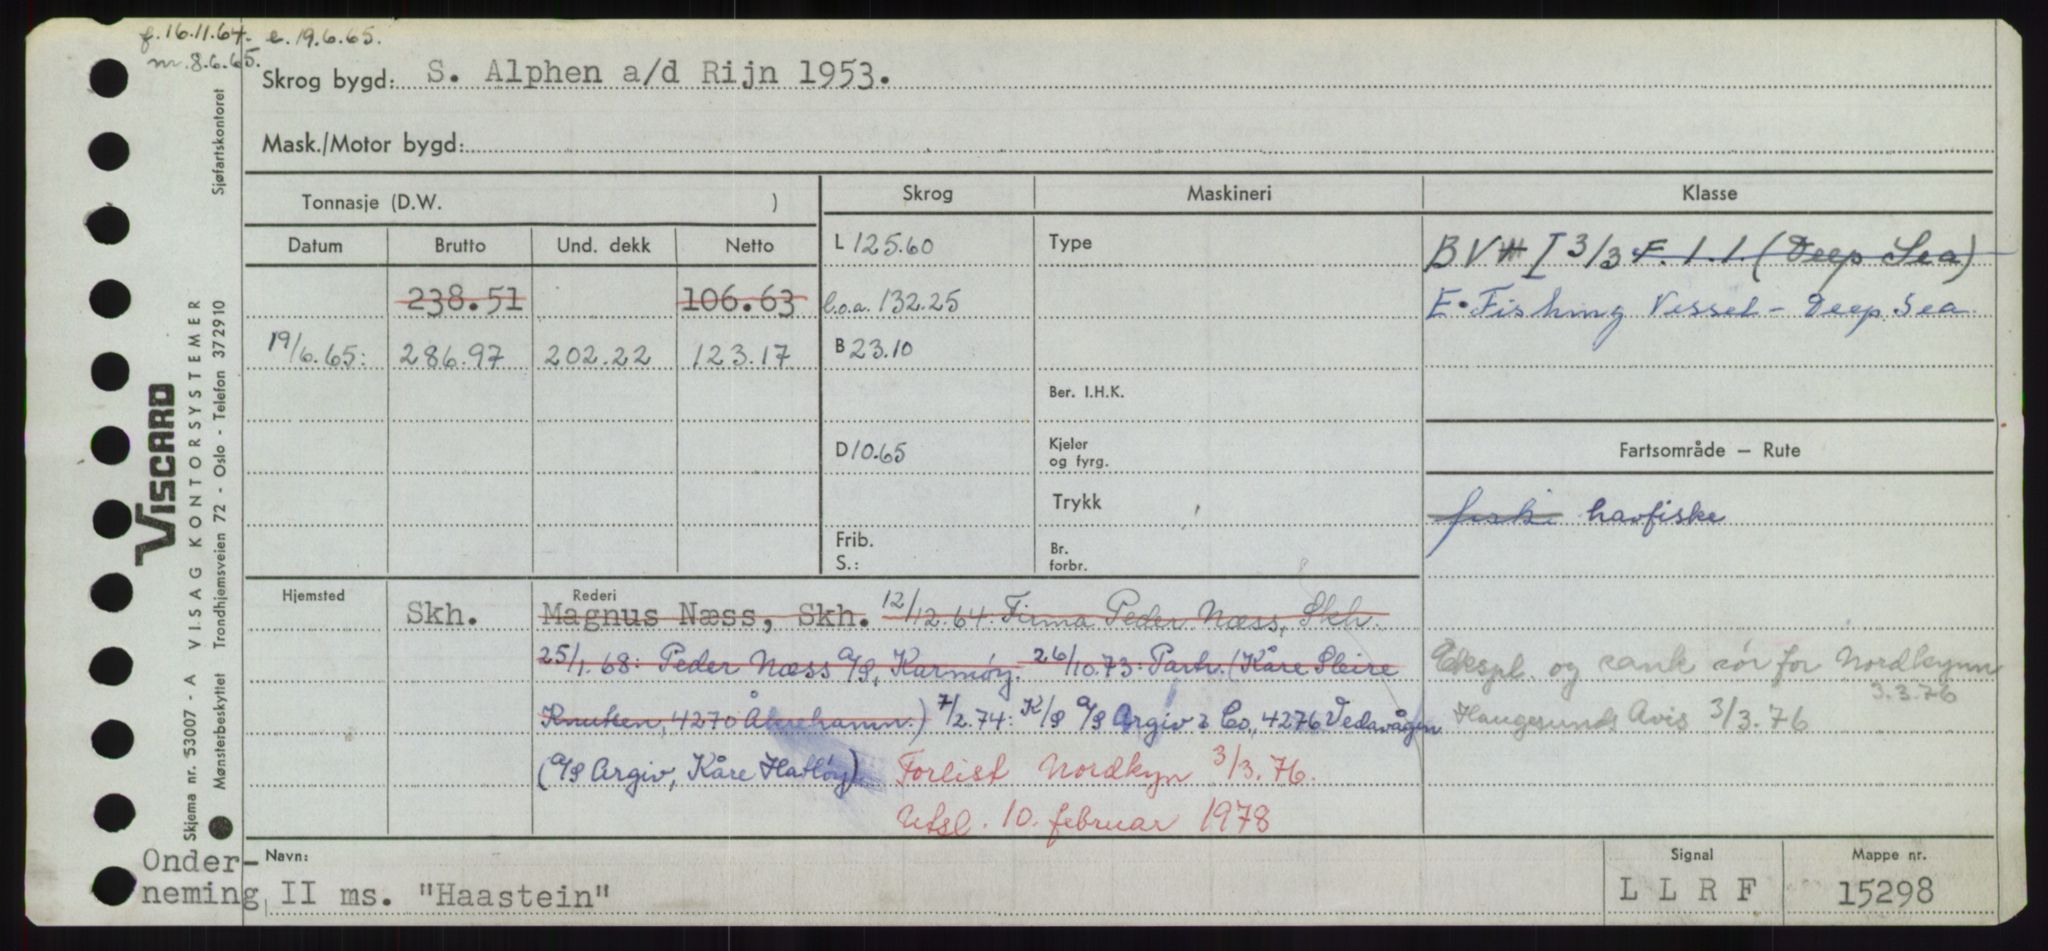 f. 16.11.64. e. 19.6.65.
m. 8.6.65.
Skrog bygd: S. Alphen a/d Rijn 1953.
Mask./Motor bygd:
Tonnasje (D.W. )
Skrog
Maskineri
Klasse
Datum
Brutto
Und. dekk
Netto
L 125.60
Type
BV I 3/3 F. 1.1. (Deep Sea)
238.51
106.63
l.o.a. 132.25
E. Fishing Vessel - Deep Sea.
19/6.65:
286.97
202.22
123.17
B 23.10
Ber. I.H.K.
D 10.65
Kjeler
og fyrg.
Fartsområde – Rute
Trykk
fiske havfiske
Frib.
S.:
Br.
forbr.
Hjemsted
Rederi
Skh.
Magnus Næss, Skh. 12/12.64: Firma Peder Næss, Skh.
25/1.68: Peder Næss A/S, Karmøy. 26/10.73: Partr. (Kåre Sleire
Knutsen, 4270 Åkrehamn.) 7/2.74: K/S A/S Argiv & Co., 4276 Vedavågen
(A/S Argiv, Kåre Hatløy) Forlist Nordkyn 3/3.76.
Utsl. 10. februar 1978
Ekspl. og sank nør for Nordkynn
3.3.76
Haugesunds Avis 3/3.76
Navn:
Onder-
neming II ms. "Haastein"
Signal
LLRF
Mappe nr.
15298
VISCARD
VISAG KONTORSYSTEMER
Sjøfartskontoret
Skjema nr. 53007 - A
Mønsterbeskyttet Trondhjemsveien 72 - Oslo - Telefon 372910